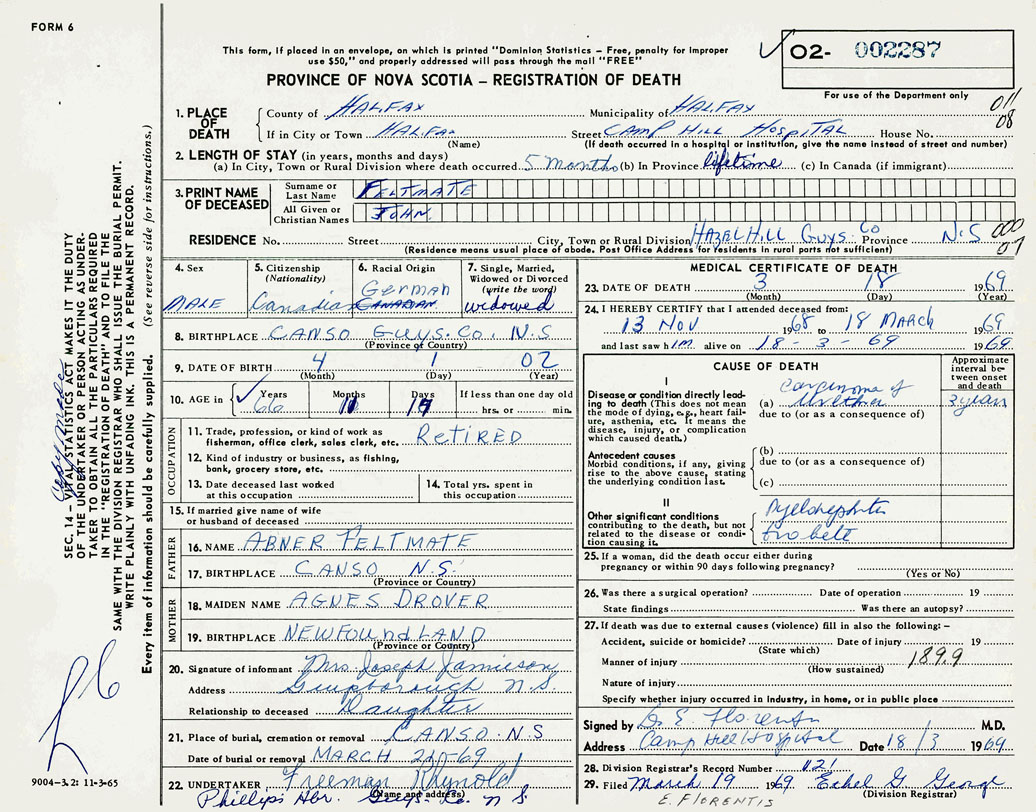 FORM 6
This form, if placed in an envelope, on which is printed "Dominion Statistics – Free, penalty for improper
use $50," and properly addressed will pass through the mail "FREE"
PROVINCE OF NOVA SCOTIA – REGISTRATION OF DEATH
02- 002287
For use of the Department only
011
08
1. PLACE OF DEATH
County of HALIFAX Municipality of HALIFAX
If in City or Town HALIFAX Street CAMP HILL HOSPITAL House No.
(Name) (If death occurred in a hospital or institution, give the name instead of street and number)
2. LENGTH OF STAY (in years, months and days)
(a) In City, Town or Rural Division where death occurred 5 months (b) In Province lifetime (c) In Canada (if immigrant)
3. PRINT NAME OF DECEASED
Surname or Last Name FELTMATE
All Given or Christian Names JOHN
RESIDENCE No. Street City, Town or Rural Division HAZEL HILL GUYS. CO Province N.S
000
07
(Residence means usual place of abode. Post Office Address for residents in rural parts not sufficient)
4. Sex
MALE
5. Citizenship
(Nationality)
Canadian
6. Racial Origin
German
CANADIAN
7. Single, Married,
Widowed or Divorced
(write the word)
widowed
8. BIRTHPLACE CANSO GUYS. CO. N.S
(Province or Country)
9. DATE OF BIRTH 4 1 02
(Month) (Day) (Year)
10. AGE in Years Months Days If less than one day old
66 11 hrs. or min.
OCCUPATION
11. Trade, profession, or kind of work as
fisherman, office clerk, sales clerk, etc. RETIRED
12. Kind of industry or business, as fishing,
bank, grocery store, etc.
13. Date deceased last worked
at this occupation
14. Total yrs. spent in
this occupation
15. If married give name of wife
or husband of deceased
FATHER
16. NAME ABNER FELTMATE
17. BIRTHPLACE CANSO N.S.
(Province or Country)
MOTHER
18. MAIDEN NAME AGNES DROVER
19. BIRTHPLACE NEWFOUNDLAND
(Province or Country)
20. Signature of informant Mrs. Joseph Jamieson
Address Guysborough N.S.
Relationship to deceased Daughter
21. Place of burial, cremation or removal CANSO. N.S
Date of burial or removal MARCH 20-69
22. UNDERTAKER Freeman
(Name and address)
Phillips Hbr. Guys. Co. N S
MEDICAL CERTIFICATE OF DEATH
23. DATE OF DEATH 3 18 1969
(Month) (Day) (Year)
24. I HEREBY CERTIFY that I attended deceased from:
13 NOV 1968 to 18 MARCH 1969
and last saw him alive on 18-3-69 1969
CAUSE OF DEATH
Approximate interval between onset and death
I
Disease or condition directly leading to death (This does not mean
the mode of dying, e.g., heart failure, asthenia, etc. It means the
disease, injury, or complication
which caused death.)
carcinoma of
(a) Urethra 3 years
due to (or as a consequence of)
Antecedent causes
Morbid conditions, if any, giving
rise to the above cause, stating
the underlying condition last.
(b)
due to (or as a consequence of)
(c)
II
Other significant conditions
contributing to the death, but not
related to the disease or condition causing it.
Pyelonephritis
25. If a woman, did the death occur either during
pregnancy or within 90 days following pregnancy?
(Yes or No)
26. Was there a surgical operation? Date of operation 19
State findings Was there an autopsy?
27. If death was due to external causes (violence) fill in also the following: –
Accident, suicide or homicide? Date of injury 19
(State which)
Manner of injury 189.9
(How sustained)
Nature of injury
Specify whether injury occurred in industry, in home, or in public place
Signed by Dr. E. Florentis M.D.
Address Camp Hill Hospital Date 18/3 1969
28. Division Registrar's Record Number 1121
29. Filed March 19 1969 Ethel G. George
(Division Registrar)
E. FLORENTIS
SEC. 14 – VITAL STATISTICS ACT MAKES IT THE DUTY
OF THE UNDERTAKER OR PERSON ACTING AS UNDER-
TAKER TO OBTAIN ALL THE PARTICULARS REQUIRED
IN THE "REGISTRATION OF DEATH" AND TO FILE THE
SAME WITH THE DIVISION REGISTRAR WHO SHALL ISSUE THE BURIAL PERMIT.
WRITE PLAINLY WITH UNFADING INK. THIS IS A PERMANENT RECORD.
Every item of information should be carefully supplied. (See reverse side for instructions.)
Copy made
9004-3.2: 11-3-65